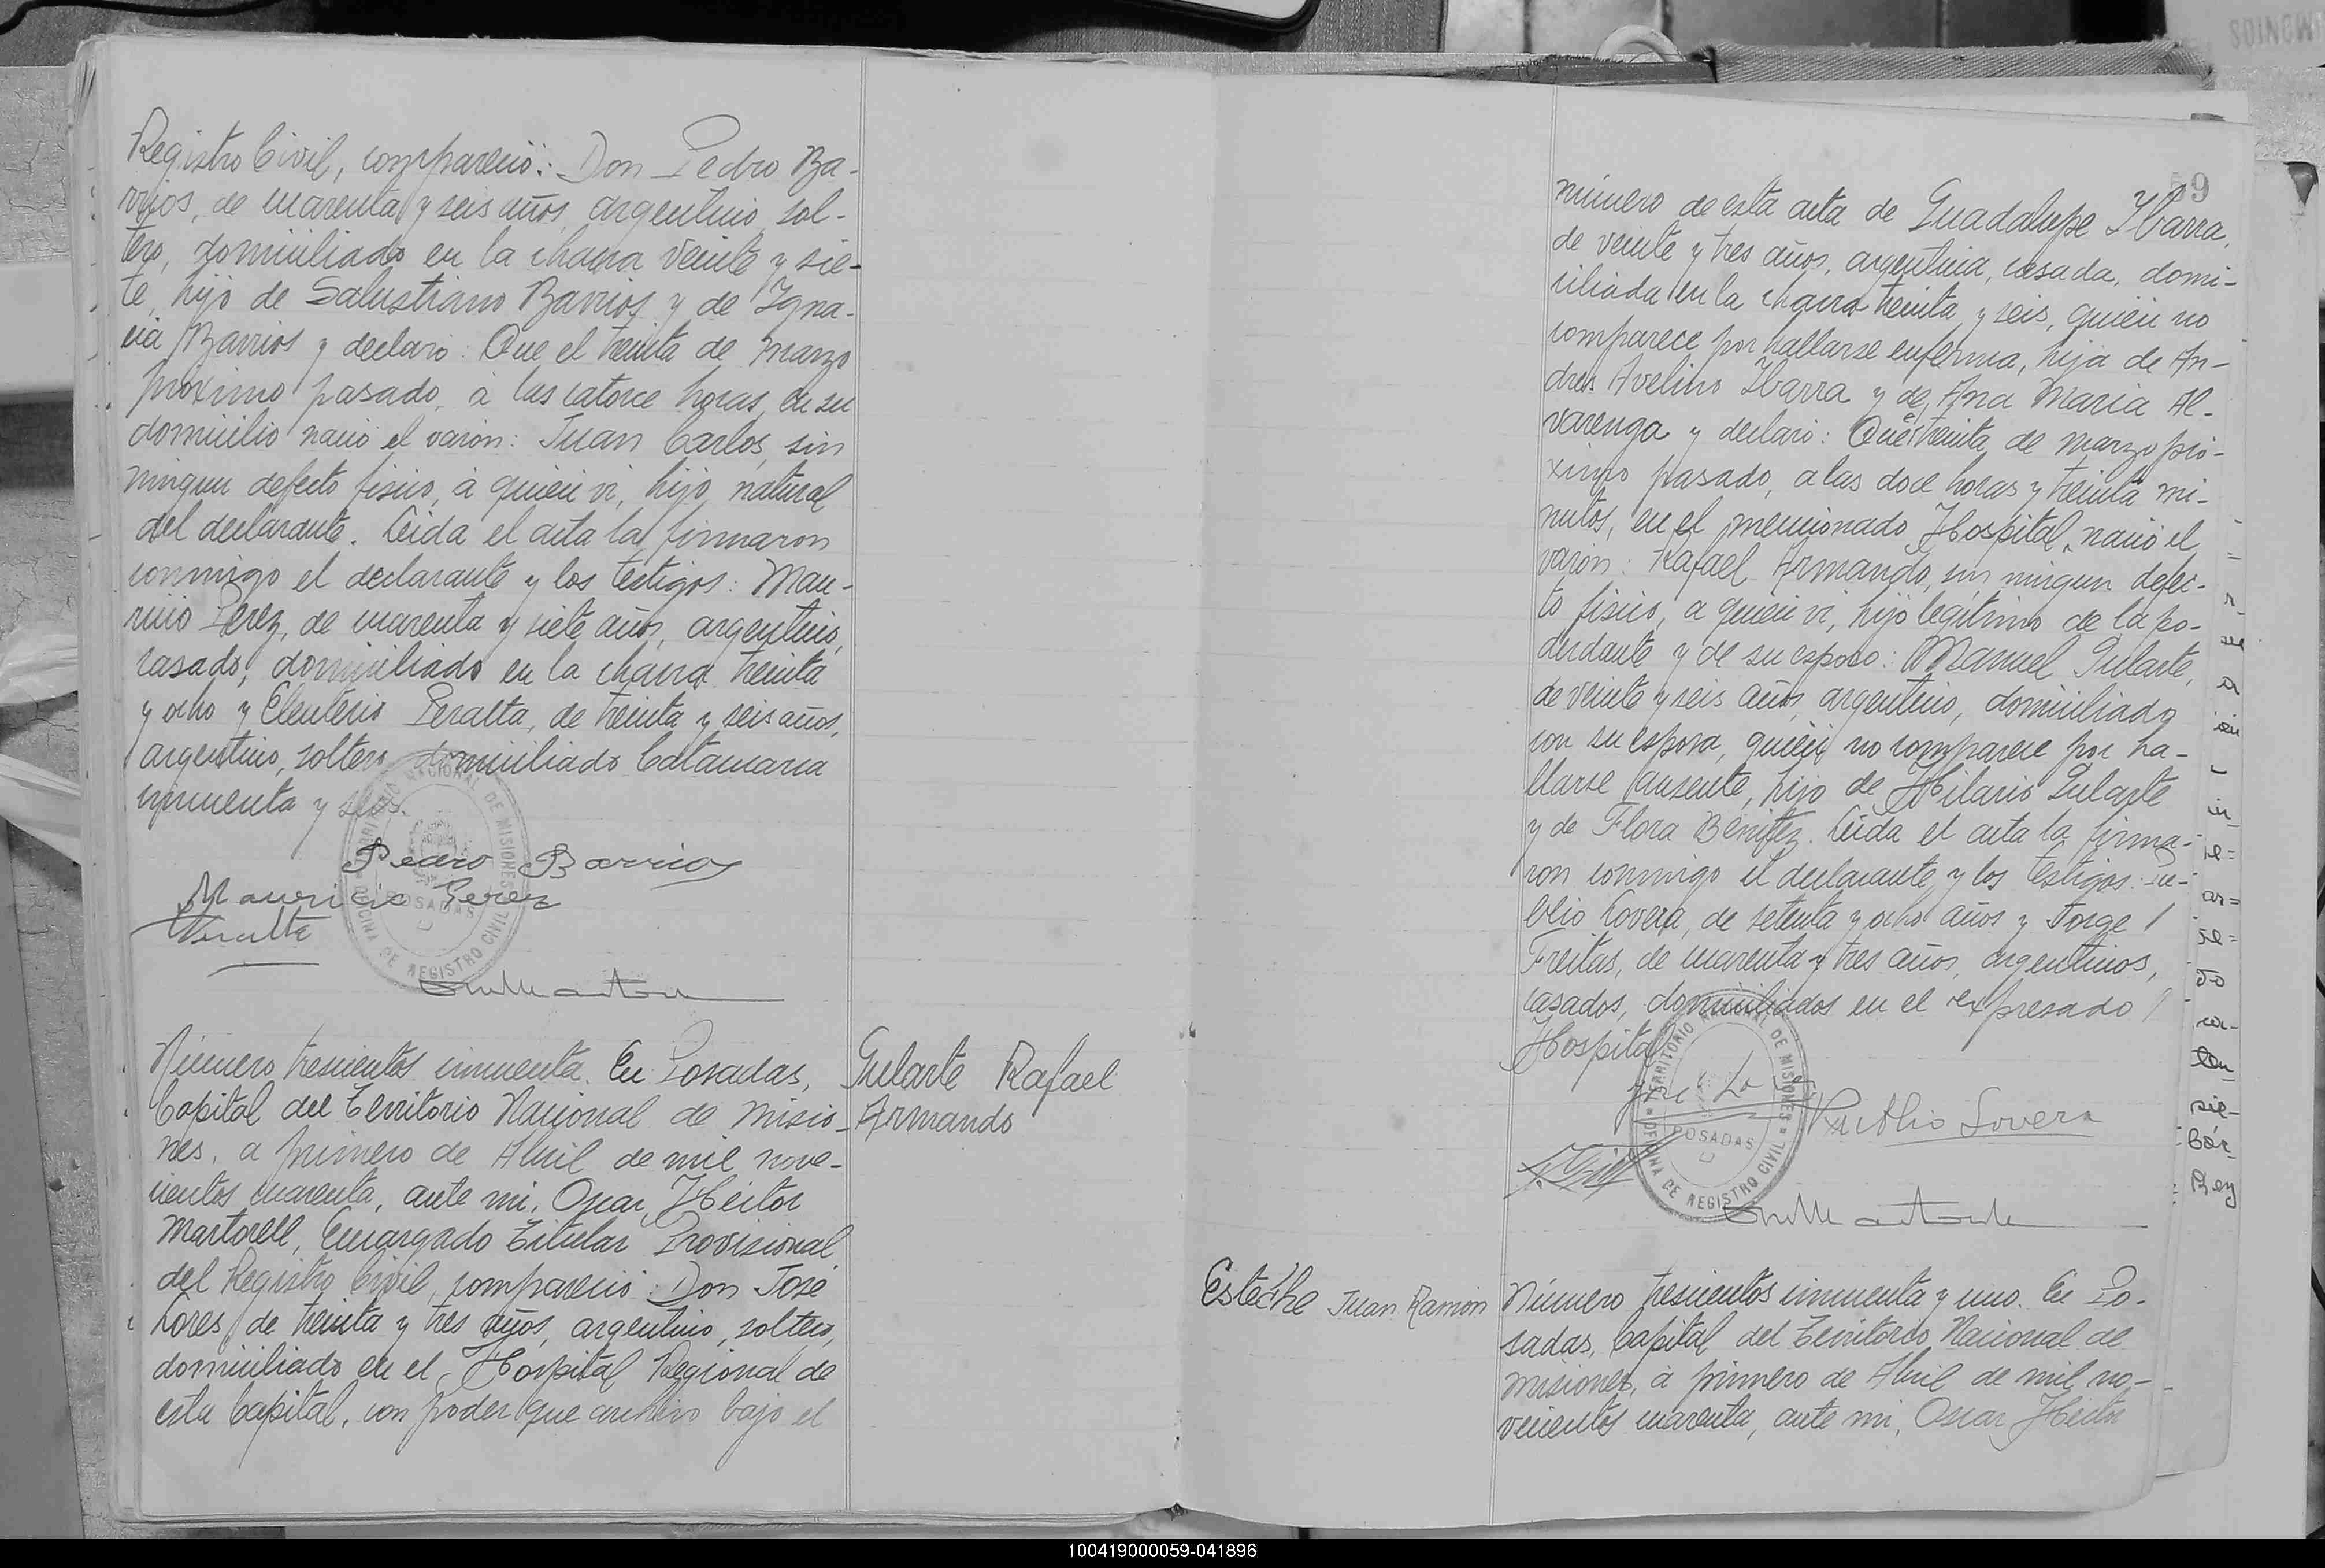 Registro Civil, compareció: Don Pedro Ba-
rrios, de cuarenta y seis años, argentino, sol-
tero, domiciliado en la chacra veinte y sie-
te, hijo de Salustiano Barrios y de Igna-
cia Barrios y declaró: Que el treinta de marzo
próximo pasado, a las catorce horas, en su
domicilio nació el varón: Juan Carlos, sin
ningun defecto fisico, a quien vi, hijo natural
del declarante. Leida el acta la firmaron
conmigo el declarante y los testigos: Mau-
ricio Perez, de cuarenta y siete años, argentino,
casado, domiciliado en la chacra treinta
y ocho y Eleuterio Peralta, de treinta y seis años,
argentino, soltero, domiciliado Catamarca
cincuenta y seis.
Pedro Barrios
Mauricio Perez
Peralta
TERRITORIO NACIONAL DE MISIONES
POSADAS
OFICINA DE REGISTRO CIVIL
Gularte Rafael
Armando
Número trescientos cincuenta. En Posadas,
Capital del Territorio Nacional de Misio-
nes, a primero de Abril de mil nove-
cientos cuarenta, ante mi, Oscar Héctor
Martorell, Encargado Titular Provisional
del Registro Civil, compareció: Don José
Lores, de treinta y tres años, argentino, soltero,
domiciliado en el Hospital Regional de
esta Capital, con poder que archivo bajo el
59
número de esta acta de Guadalupe Ibarra,
de veinte y tres años, argentina, casada, domi-
ciliada en la chacra treinta y seis, quien no
comparece por hallarse enferma, hija de An-
dres Avelino Ibarra y de Ana Maria Al-
varenga y declaró: Que el treinta de marzo pró-
ximo pasado, a las doce horas y treinta mi-
nutos, en el mencionado Hospital, nació el
varón: Rafael Armando, sin ningun defec-
to fisico, a quien vi, hijo legitimo de la po-
derdante y de su esposo: Manuel Gularte,
de veinte y seis años, argentino, domiciliado
con su esposa, quien no comparece por ha-
llarse ausente, hijo de Hilario Gularte
y de Flora Benitez. Leida el acta la firma-
ron conmigo el declarante y los testigos: Pu-
blio Lovera, de setenta y ocho años y Jorge
Freitas, de cuarenta y tres años, argentinos,
casados, domiciliados en el expresado
Hospital
Publio Lovera
TERRITORIO NACIONAL DE MISIONES
POSADAS
OFICINA DE REGISTRO CIVIL
Esteche Juan Ramón
Número trescientos cincuenta y uno. En Po-
sadas, Capital del Territorio Nacional de
Misiones, a primero de Abril de mil no-
vecientos cuarenta, ante mi, Oscar Héctor
100419000059-041896